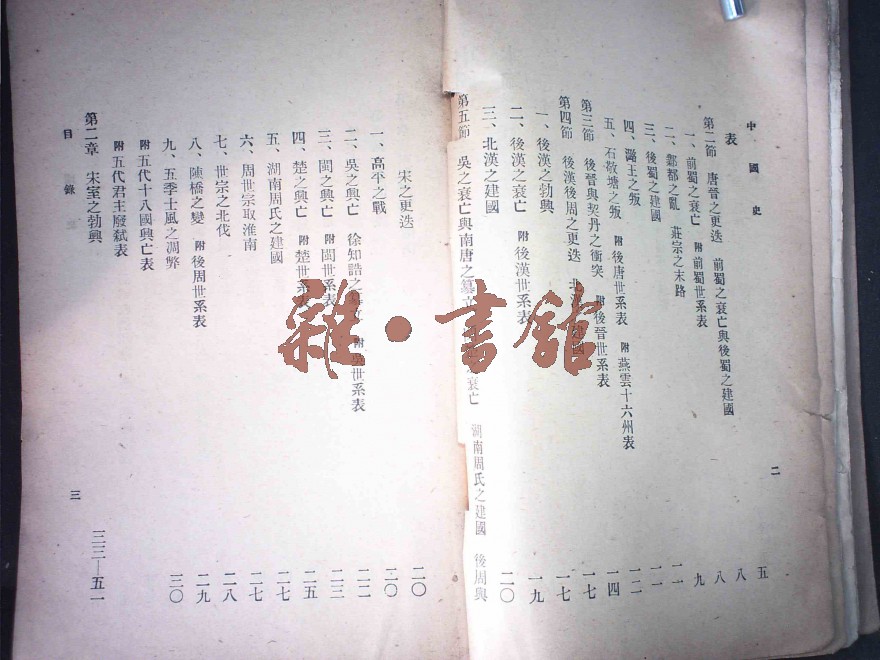 中國史 二
表 五
第二節 唐晉之更迭 前蜀之衰亡與後蜀之建國 八
一、前蜀之衰亡 附前蜀世系表 八
二、鄴都之亂 莊宗之末路 九
三、後蜀之建國 一一
四、潞王之叛 附後唐世系表 一一
五、石敬塘之叛 附燕雲十六州表 一二
第三節 後晉與契丹之衝突 附後晉世系表 一四
第四節 後漢後周之更迭 北漢之建國 一七
一、後漢之勃興 一七
二、後漢之衰亡 附後漢世系表 一九
三、北漢之建國 二〇
第五節 吳之衰亡與南唐之篡立 衰亡 湖南周氏之建國 後周與
宋之更迭 二〇
一、高平之戰 二〇
二、吳之興亡 徐知誥之篡立 附吳世系表 二二
三、閩之興亡 附閩世系表 二三
四、楚之興亡 附楚世系表 二五
五、湖南周氏之建國 二七
六、周世宗取淮南 二七
七、世宗之北伐 二八
八、陳橋之變 附後周世系表 二九
九、五季士風之凋弊 三〇
附五代十八國興亡表
附五代君主廢弒表
第二章 宋室之勃興 三三—五一
目錄 三
雜·書館